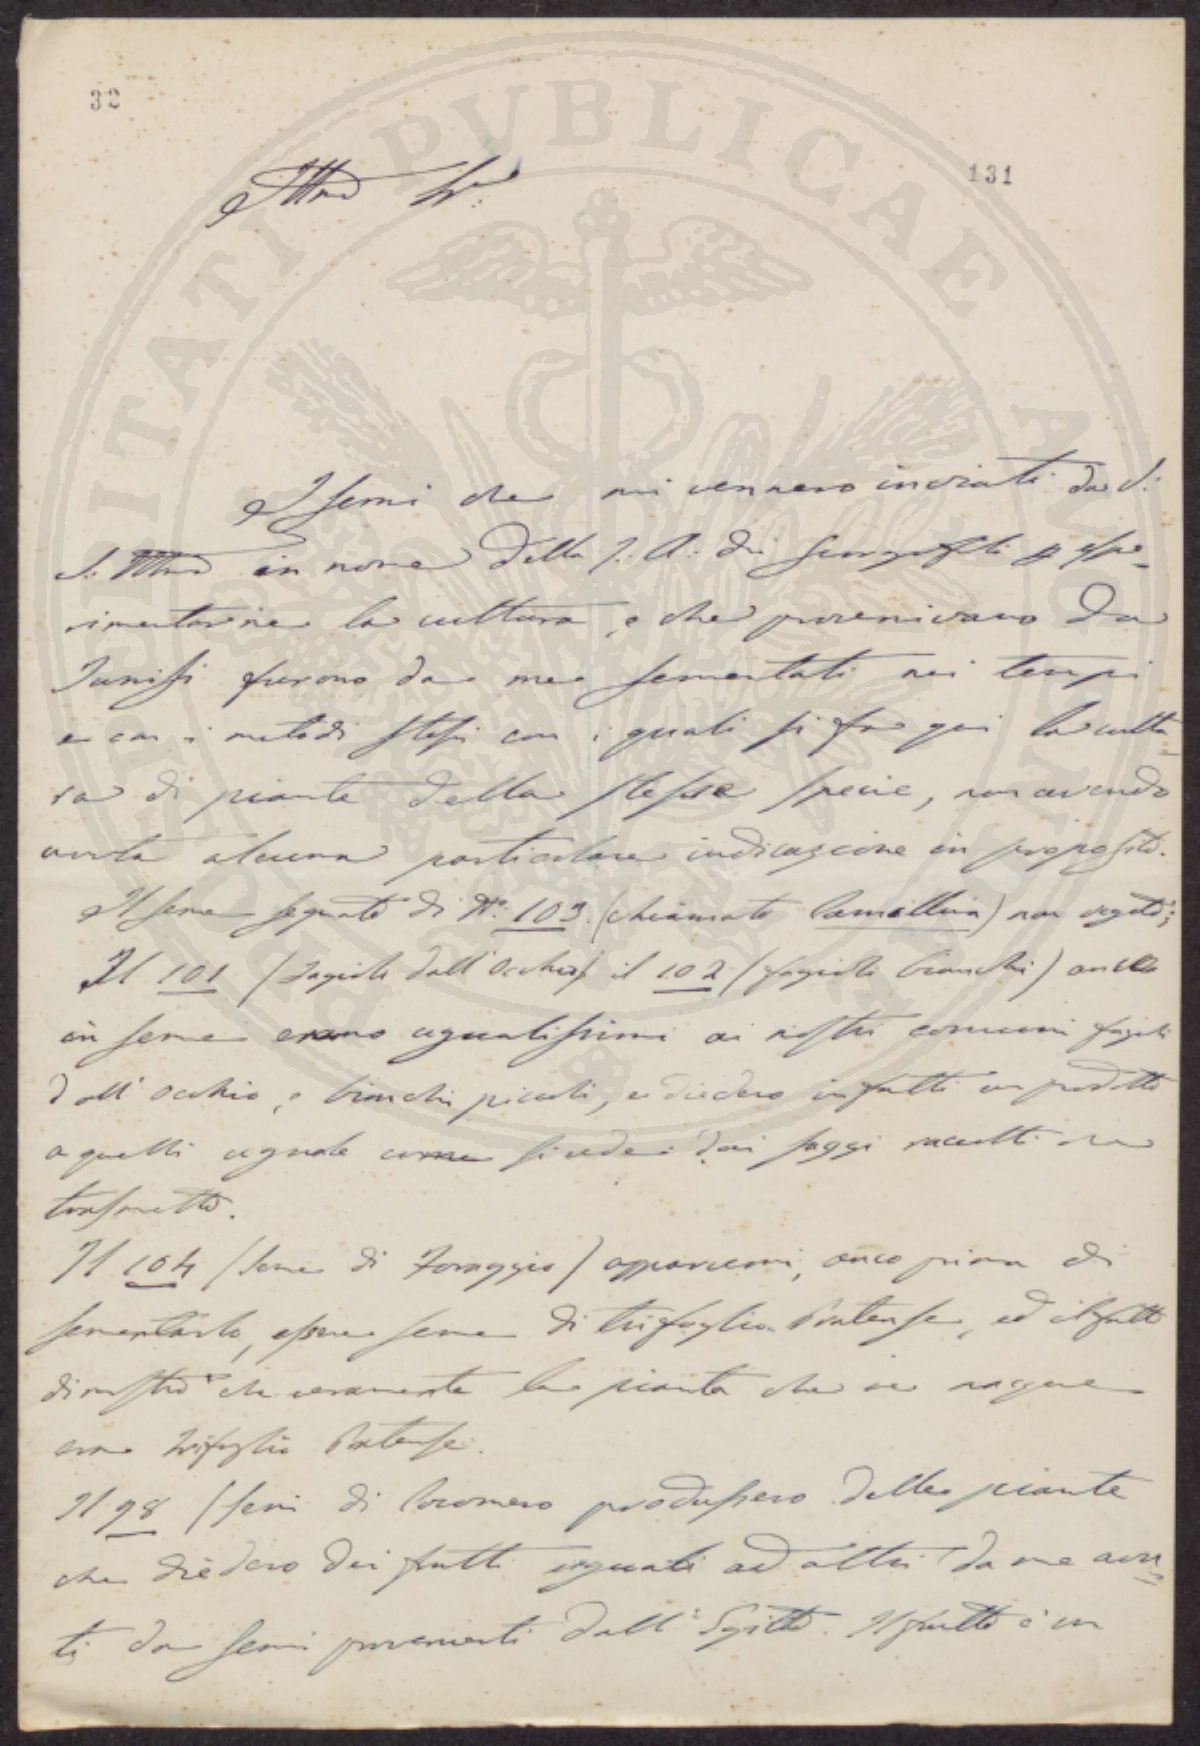 32
131
Illmo Sre
I semi che mi vennero inviati da S:
S: Illma in nome della I. A: dei Georgofili p espe-
rimentarne la cultura, e che provenivano da
Tunisi furono da me sementati nei tempi
e con i metodi stessi con i quali si fa qui la cultu-
ra di piante della stessa specie, non avendo
avuta alcuna particolare indicazione in proposito.
Il seme segnato di No. 103. (chiamato Camellina) non vegetò;
Il 101 (Fagioli dall'occhio) il 102 (fagioli bianchi) anche
in seme erano ugualissimi ai nostri comuni fagioli
dall'occhio, e bianchi piccoli, e diedero infatti un prodotto
a quelli uguale come si vede dai saggi raccolti che
trasmetto.
Il 104 (Seme di Foraggio) apparvemi, anco prima di
sementarlo, essere seme di trifoglio Pratense, ed il fatto
dimostrò che veramente la pianta che ne nacque
era Trifoglio Pratense.
Il 98 (semi di Cocomero produssero delle piante
che diedero dei frutti uguali ad altri da me avu-
ti da semi provenienti dall'Egitto. Il frutto è un
PVBLICAE